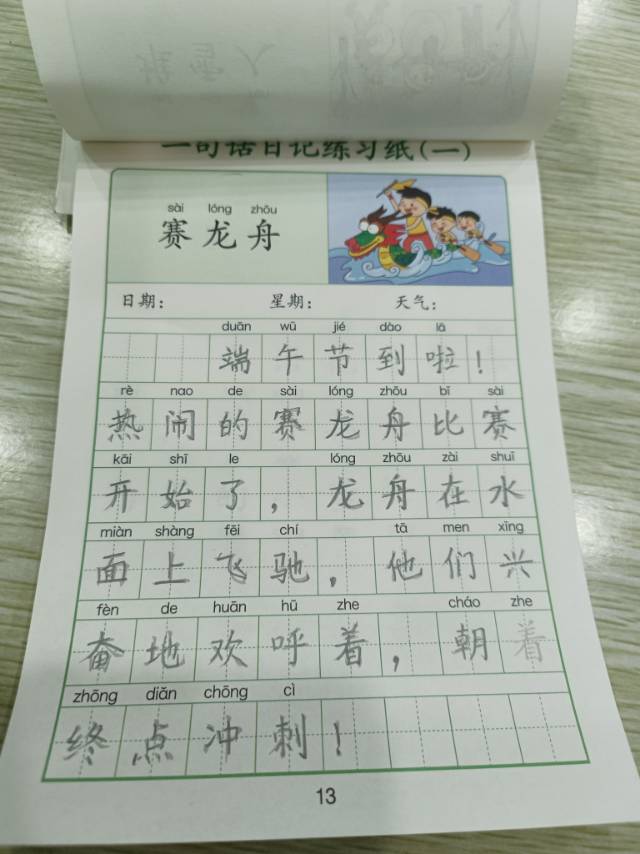 一句话日记练习纸(一)
sài lóng zhōu
赛龙舟
日期: 星期: 天气:
duān wǔ jié dào la
端午节到啦！
rè nao de sài lóng zhōu bǐ sài
热闹的赛龙舟比赛
kāi shǐ le lóng zhōu zài shuǐ
开始了，龙舟在水
miàn shàng fēi chí tā men xīng
面上飞驰，他们兴
fèn de huān hū zhe cháo zhe
奋地欢呼着，朝着
zhōng diǎn chōng cì
终点冲刺！
13